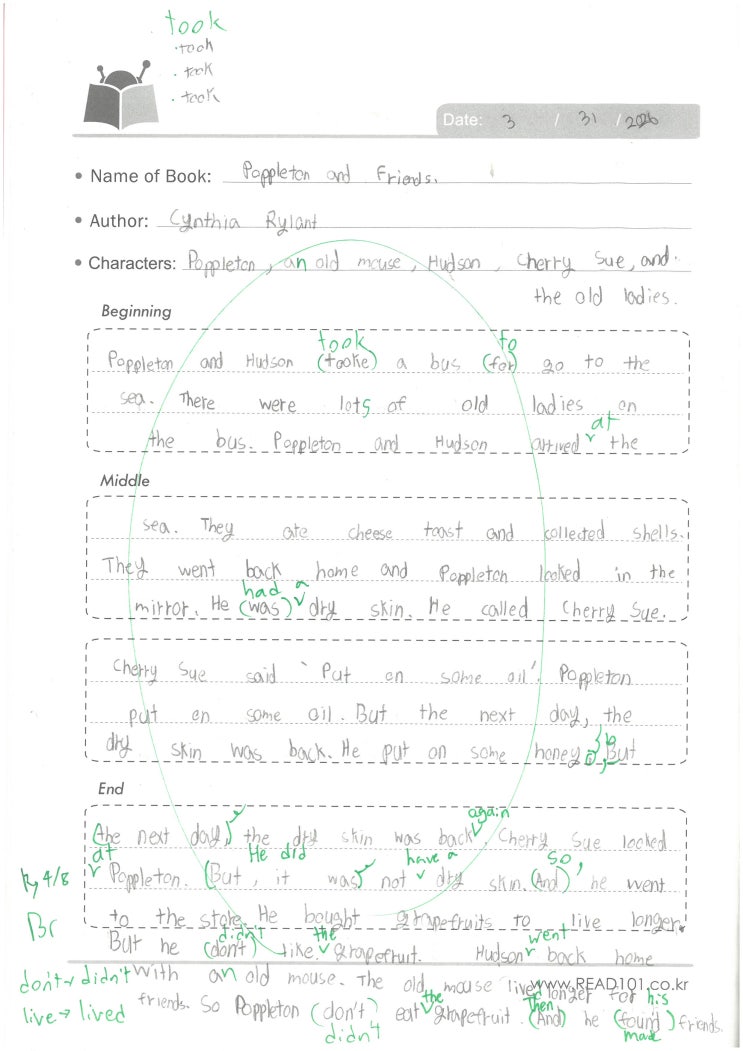 took
· took
· took
· took
Date: 3 / 31 / 2026
• Name of Book: Poppleton and Friends.
• Author: Cynthia Rylant
• Characters: Poppleton, an old mouse, Hudson, Cherry Sue, and
the old ladies.
Beginning
took to
Poppleton and Hudson (tooke) a bus (for) go to the
sea. There were lots of old ladies on
at
the bus. Poppleton and Hudson arrived ˅ the
Middle
sea. They ate cheese toast and collected shells.
They went back home and Poppleton looked in the
had a
mirror. He (was) ˅ dry skin. He called Cherry Sue.
Cherry Sue said 'Put on some oil'. Poppleton
put on some oil. But the next day, the
dry skin was back. He put on some honey. But
b
End
again
the next day, the dry skin was back ˅. Cherry Sue looked
at He did have a so,
˅ Poppleton. (But, it was) not ˅ dry skin. (And) he went
4/8
to the store. He bought grapefruits to live longer.
Br
didn't the went
But he (don't) like ˅ grapefruit. Hudson ˅ back home
don't → didn't
with an old mouse. The old mouse live longer for his
www.READ101.co.kr
live → lived
the Then
friends. So Poppleton (don't) eat ˅ grapefruit. (And) he (found) friends.
didn't made